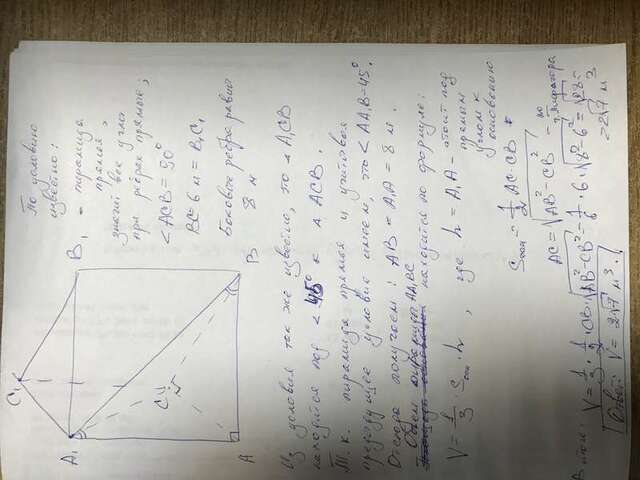 По условию
известно:
- пирамида
прямая,
значит все углы
при ребрах прямые;
<ACB = 90°
BC = 6 м = B₁C₁
Боковые ребра равны
8 м
C₁
A₁
B₁
C
A
B
Из условия так же известно, что △ A₁CB
находится под < 45° к △ ACB.
Т.к. пирамида прямая и учитывая
предыдущее условие имеем, что < AA₁B = 45°
Отсюда получаем: AB = A₁A = 8 м.
Объем пирамиды AA₁BC
находится по формуле:
V = 1/3 · Sосн · h, где h = A₁A - стоит под
прямым
углом к
основанию
Sосн = 1/2 AC · CB
AC = √AB² - CB² - по
т. Пифагора
V = 1/3 · 1/2 · CB · √AB² - CB² = 1/6 · 6 · √8² - 6² = √28 =
= 2√7 м³
Ответ: V = 2√7 м³.